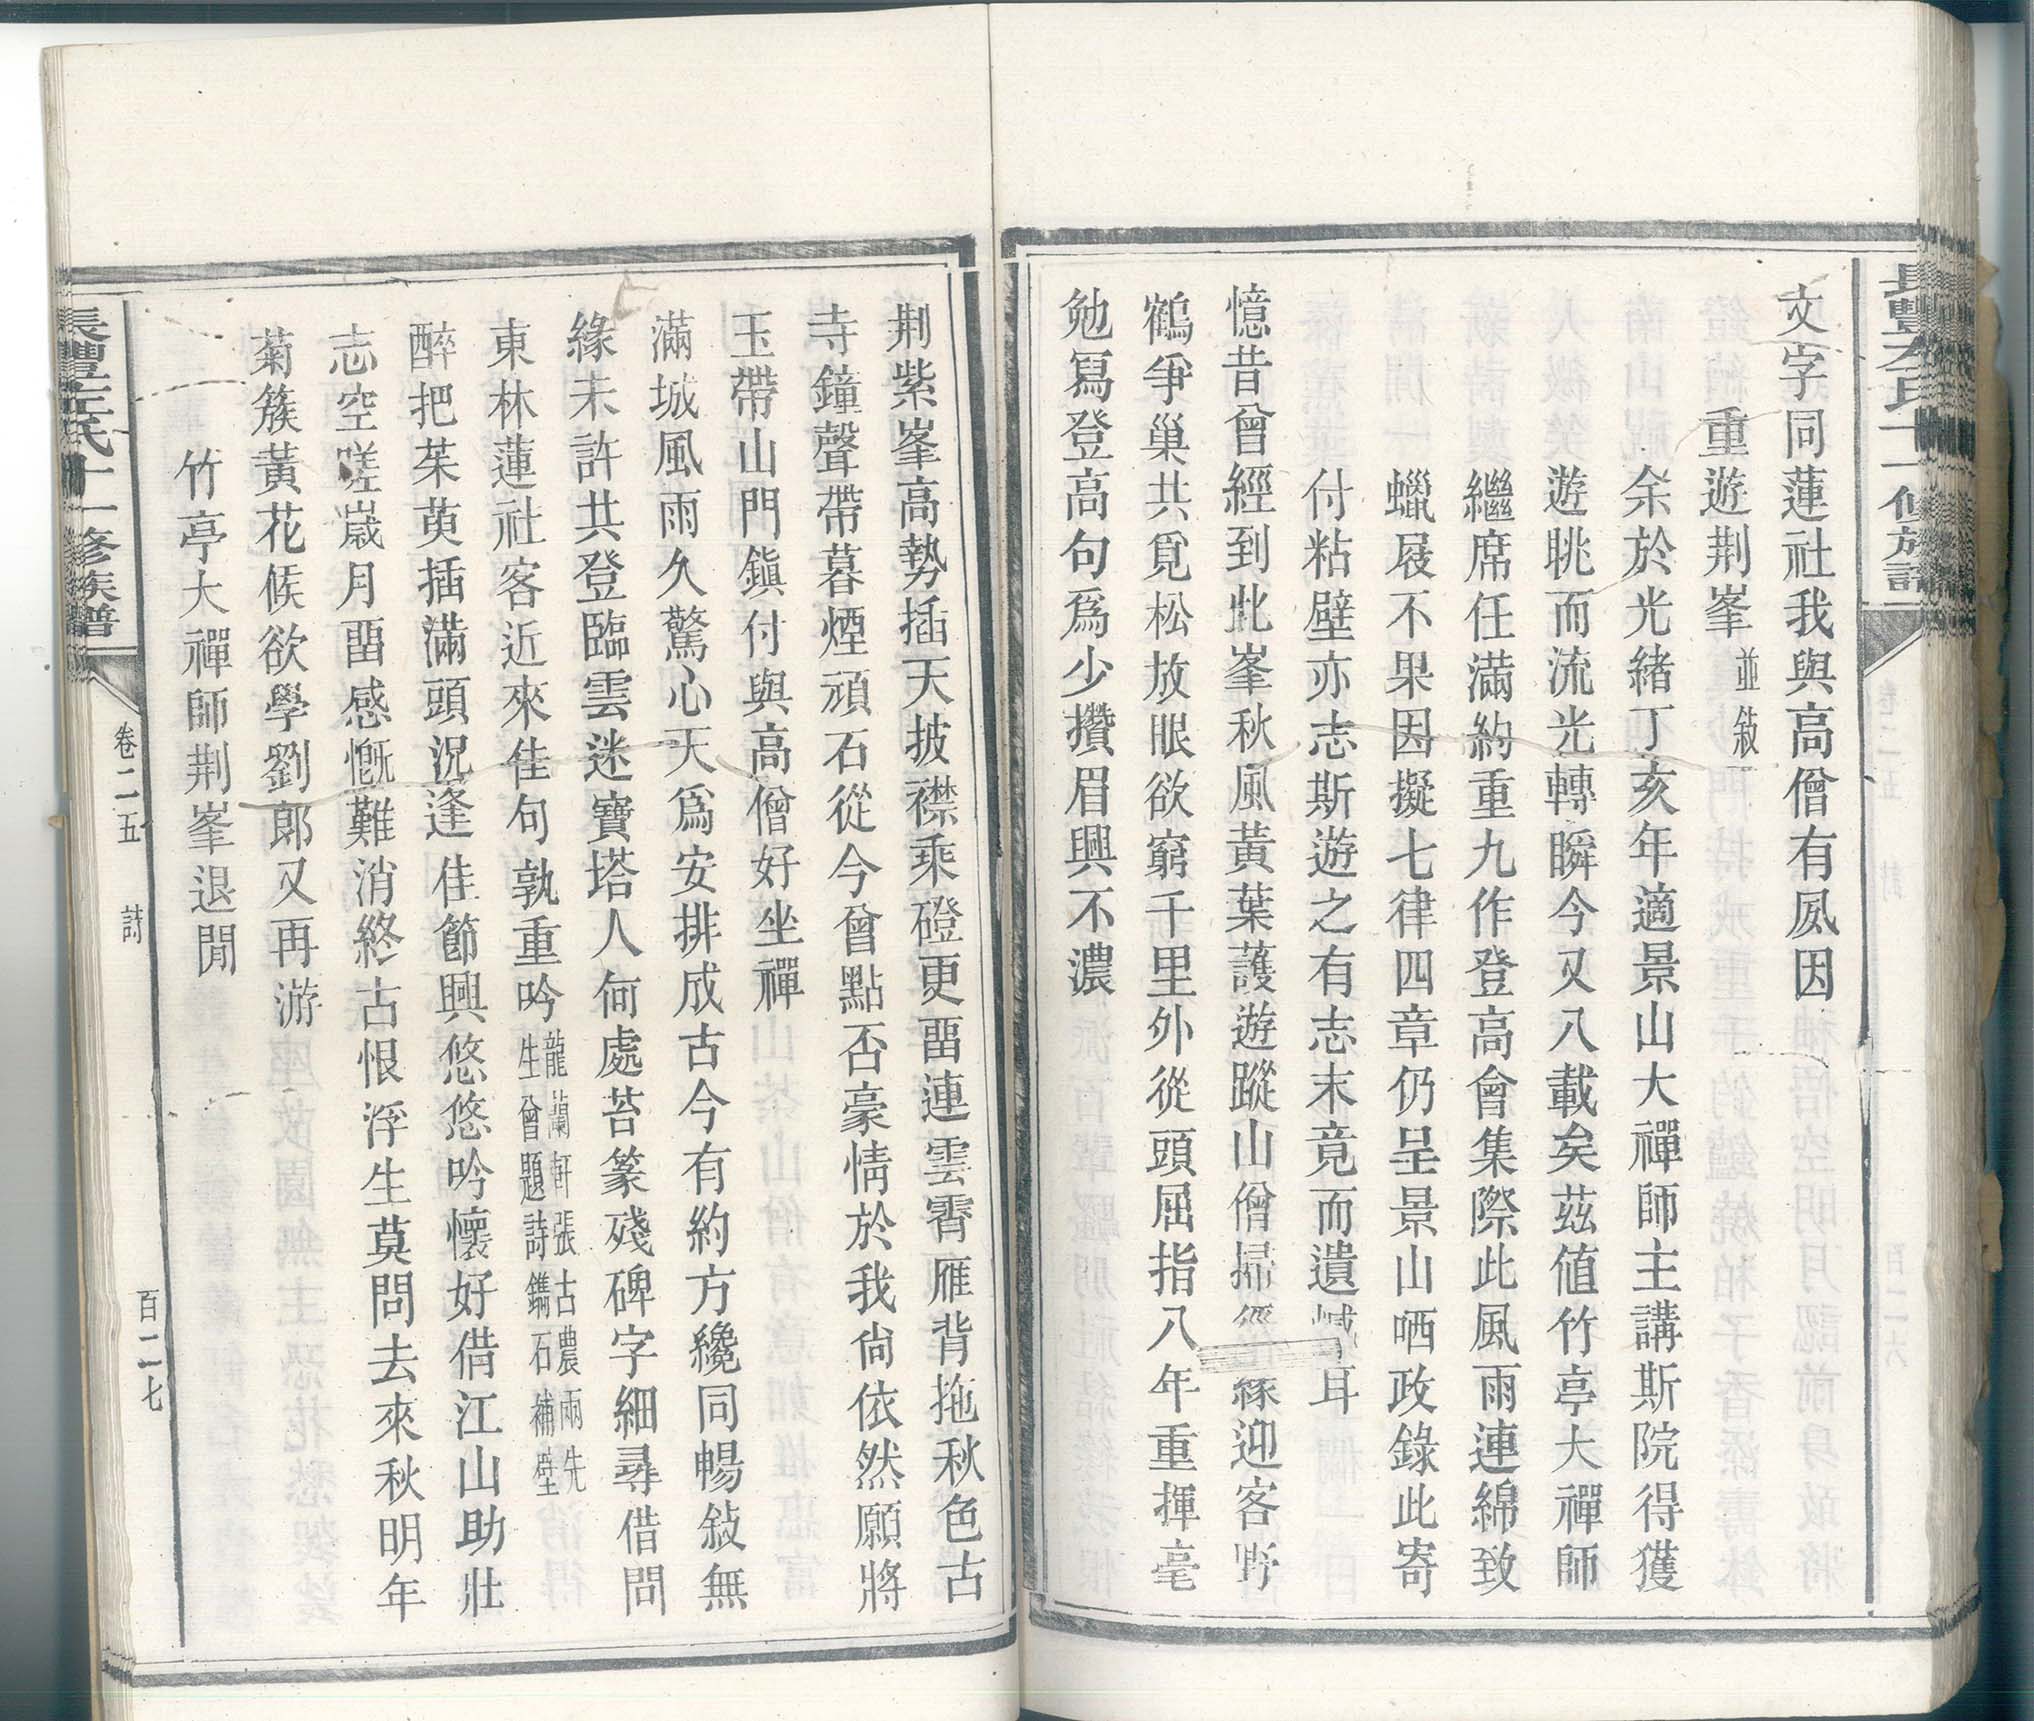 文字同蓮社我與高僧有夙因
重遊荆峯並敍
余於光緒丁亥年適景山大禪師主講斯院得獲
遊眺而流光轉瞬今又八載矣茲值竹亭大禪師
繼席任滿約重九作登高會集際此風雨連綿致
蠟屐不果因擬七律四章仍呈景山哂政錄此寄
付粘壁亦志斯遊之有志未竟而遺憾耳
憶昔曾經到此峯秋風黃葉護遊蹤山僧掃徑緣迎客野
鶴爭巢共覓松放眼欲窮千里外從頭屈指八年重揮毫
勉寫登高句爲少攢眉興不濃
荆紫峯高勢插天披襟乘磴更畱連雲霄雁背拖秋色古
寺鐘聲帶暮煙頑石從今曾點否豪情於我尙依然願將
玉帶山門鎭付與高僧好坐禪
滿城風雨久驚心天爲安排成古今有約方纔同暢敍無
緣未許共登臨雲迷寶塔人何處苔篆殘碑字細尋借問
東林蓮社客近來佳句孰重吟龍蘭軒張古農兩先生曾題詩鐫石補壁
醉把茱萸插滿頭況逢佳節興悠悠吟懷好借江山助壯
志空嗟歲月畱感慨難消終古恨浮生莫問去來秋明年
菊簇黃花候欲學劉郎又再游
竹亭大禪師荆峯退閒
長豐李氏十一修族譜
卷二五
詩
百二七